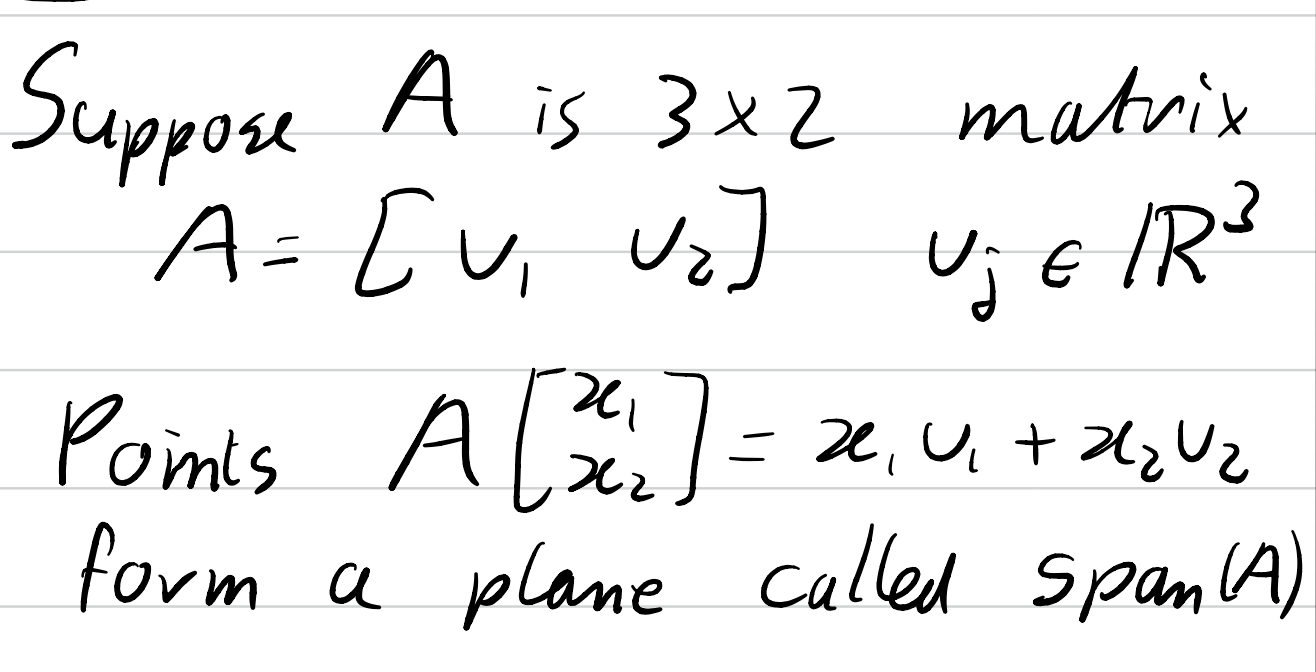 Suppose A is 3×2 matrix
A = [υ₁ υ₂] υⱼ ∈ ℝ³
Points A[x₁ x₂] = x₁υ₁ + x₂υ₂
form a plane called span(A)